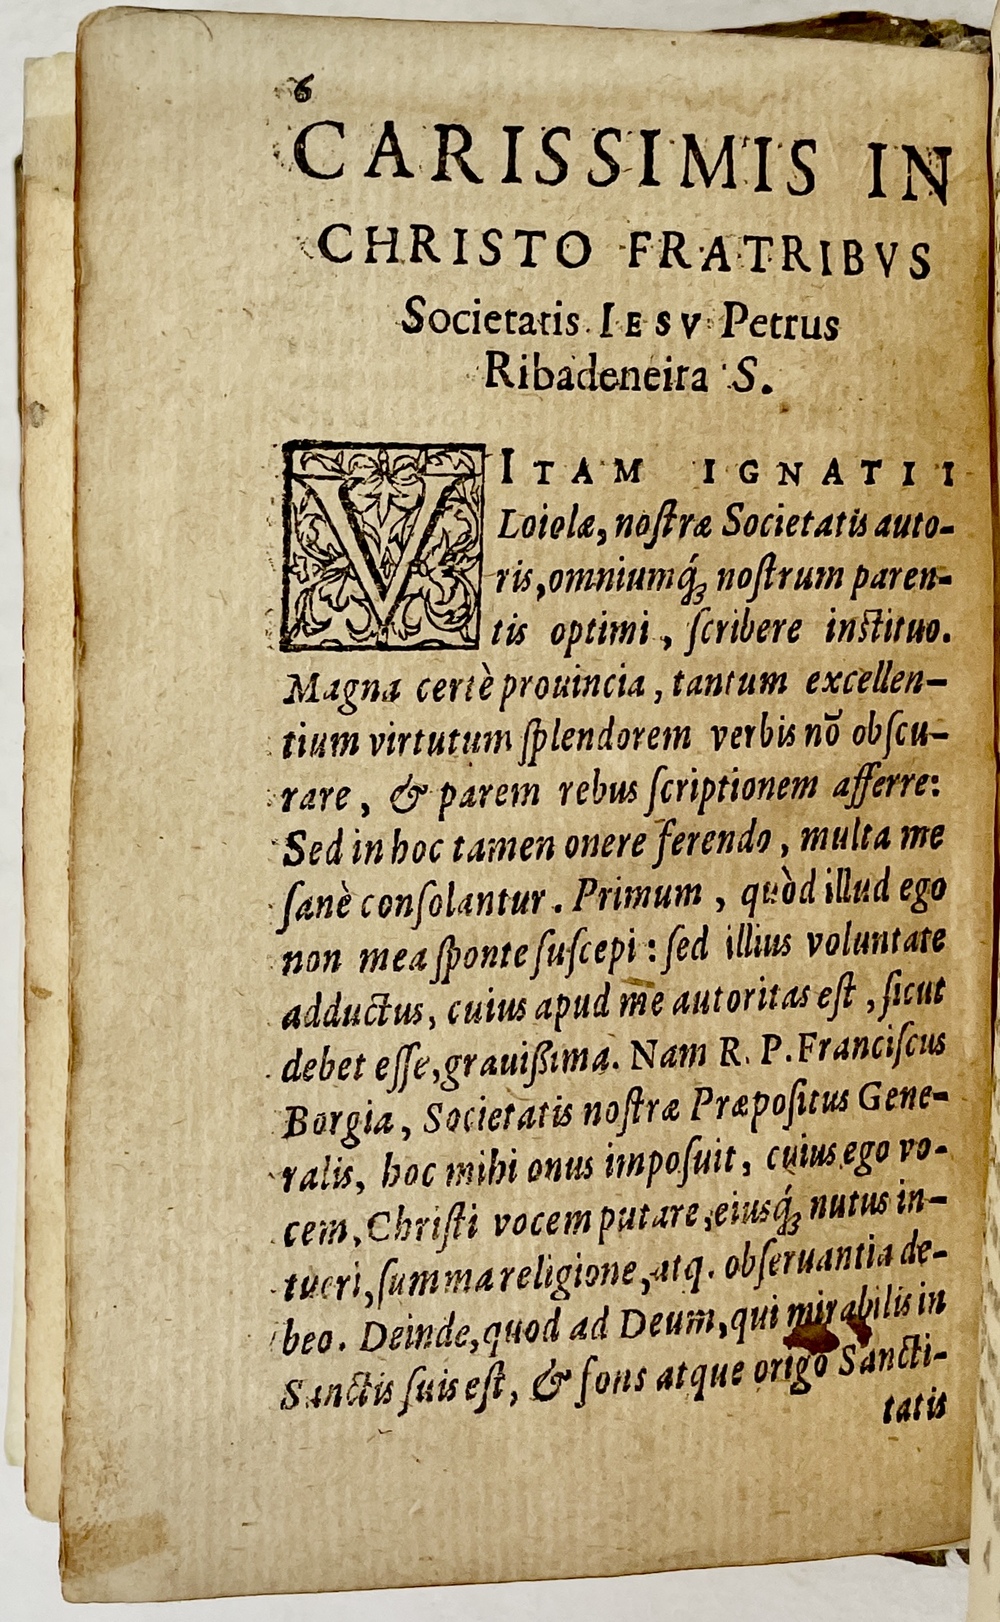 6
CARISSIMIS IN
CHRISTO FRATRIBVS
Societatis IESV Petrus
Ribadeneira S.
VITAM IGNATII
Loiolæ, noſtræ Societatis auto-
ris, omniumq́ꝫ noſtrum paren-
tis optimi, ſcribere inſtituo.
Magna certè prouincia, tantum excellen-
tium virtutum ſplendorem verbis nō obſcu-
rare, & parem rebus ſcriptionem afferre:
Sed in hoc tamen onere ferendo, multa me
ſanè conſolantur. Primum, quòd illud ego
non mea ſponte ſuſcepi: ſed illius voluntate
adductus, cuius apud me autoritas eſt, ſicut
debet eſſe, grauißima. Nam R. P. Franciſcus
Borgia, Societatis noſtræ Præpoſitus Gene-
ralis, hoc mihi onus impoſuit, cuius ego vo-
cem, Chriſti vocem putare, eiusq́ꝫ nutus in-
tueri, ſumma religione, atq. obſeruantia de-
beo. Deinde, quod ad Deum, qui mirabilis in
Sanctis ſuis eſt, & fons atque origo Sancti-
tatis